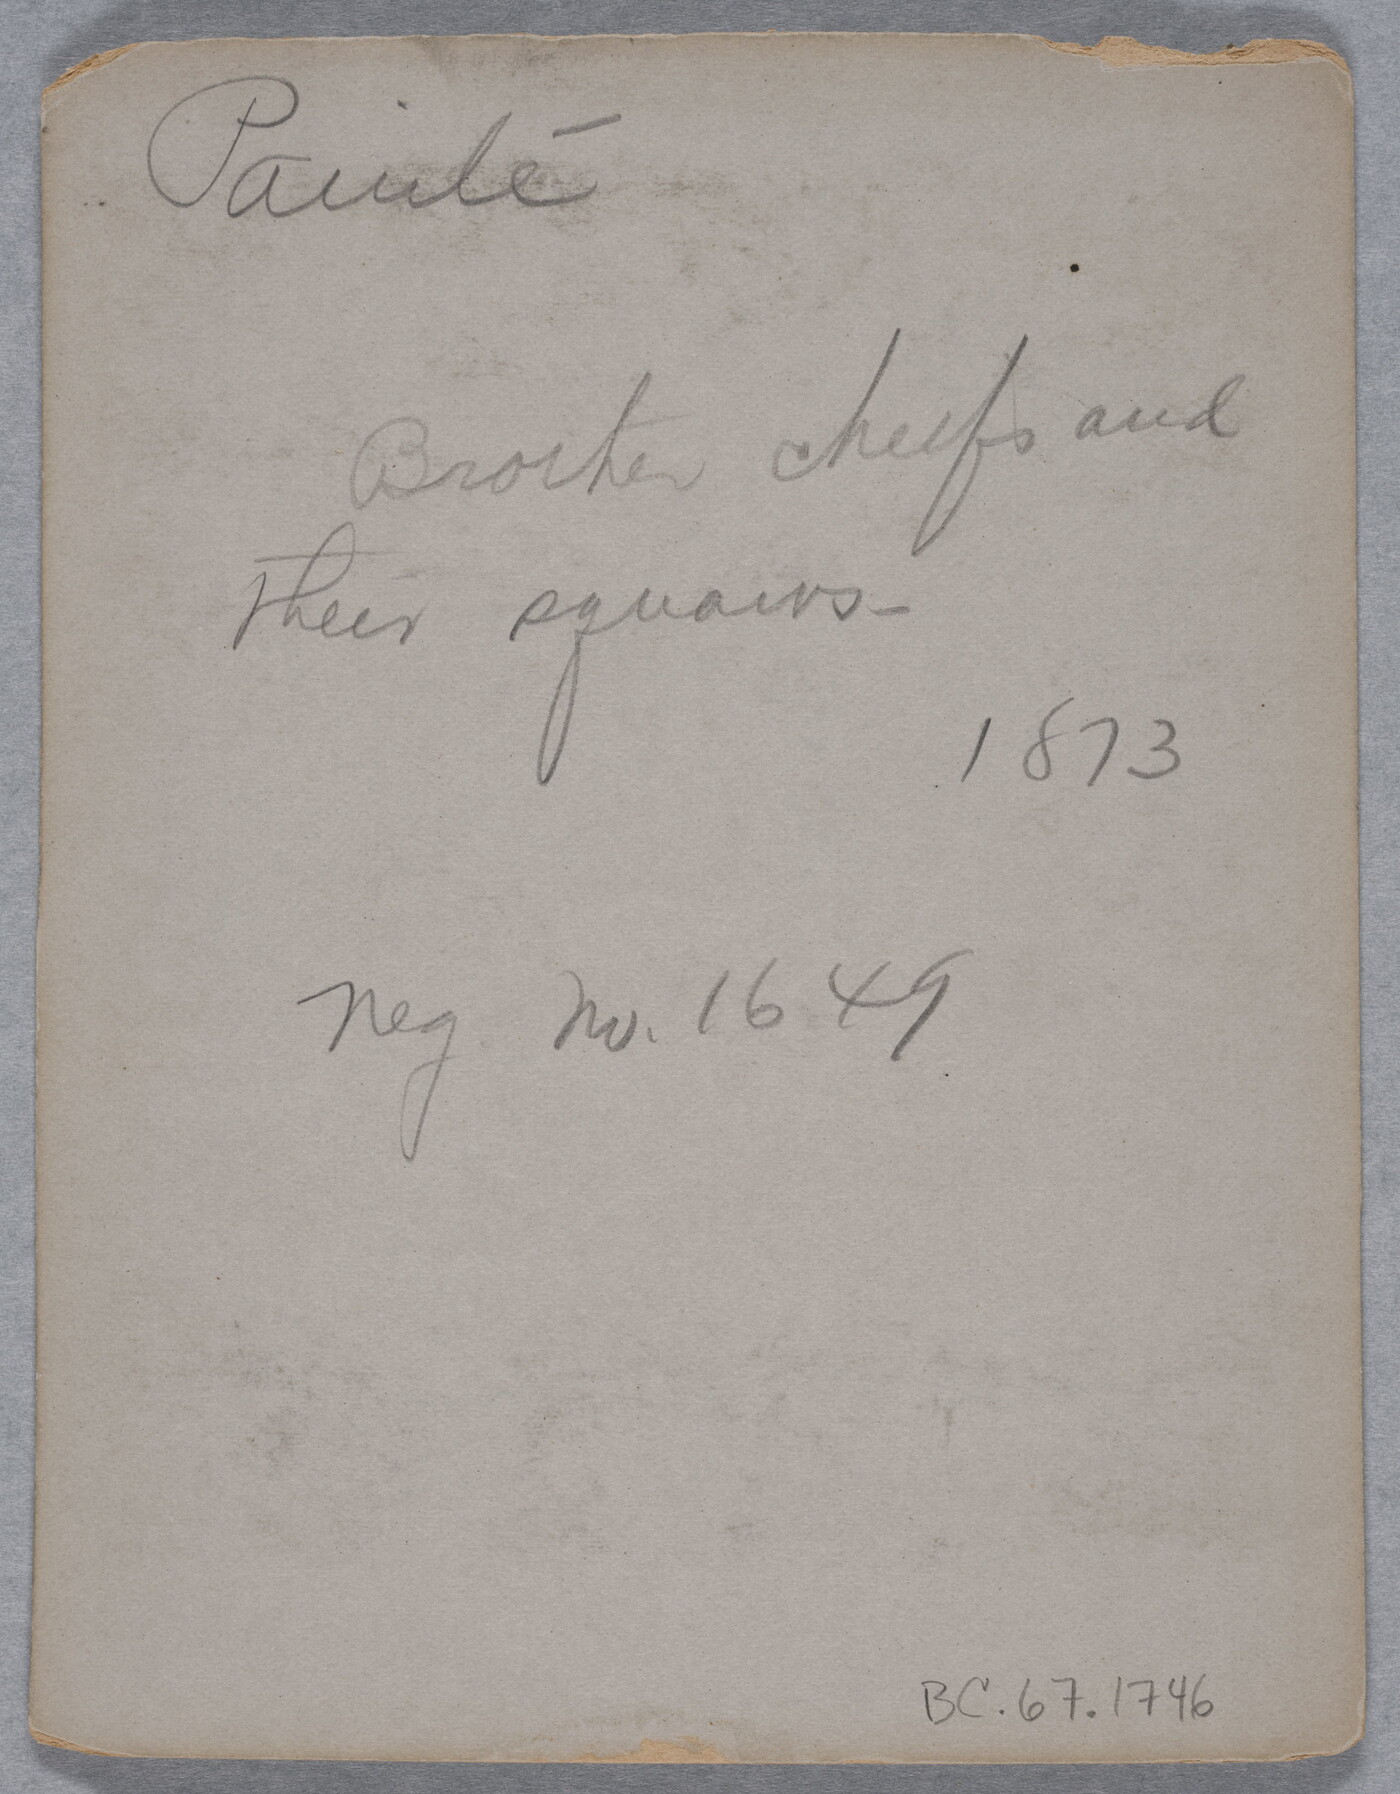 Paiute
Brother chiefs and
their squaws-
1873
Neg No. 1649
BC.67.1746